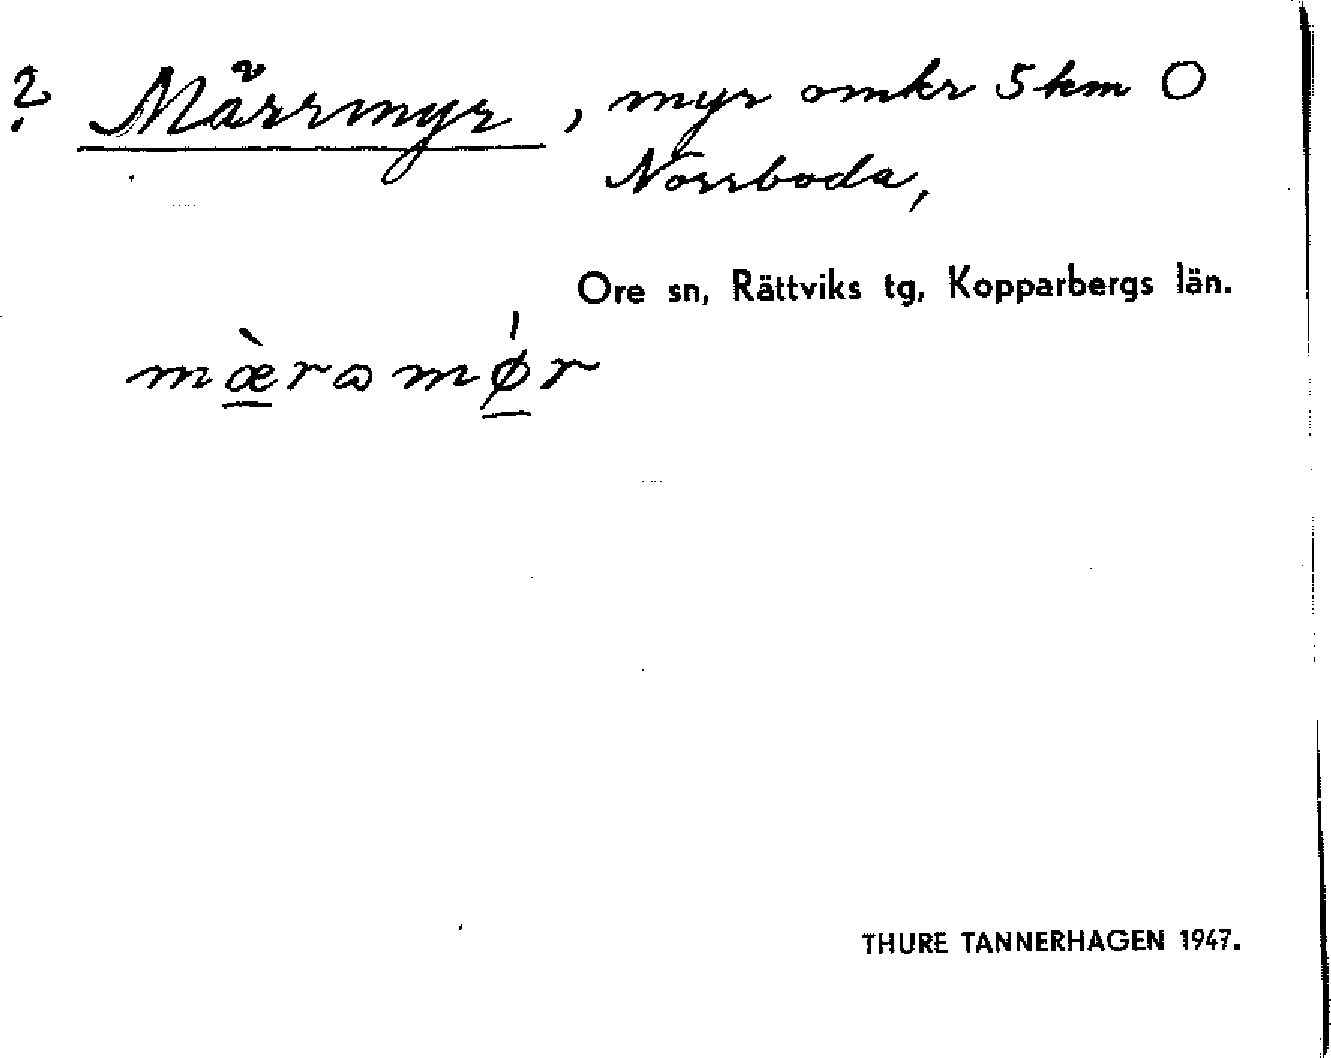 ? Märrmyr, myr omkr 5 km O
Norrboda,
Ore sn, Rättviks tg, Kopparbergs län.
mæ̲̀rɷmǿ̲r
THURE TANNERHAGEN 1947.